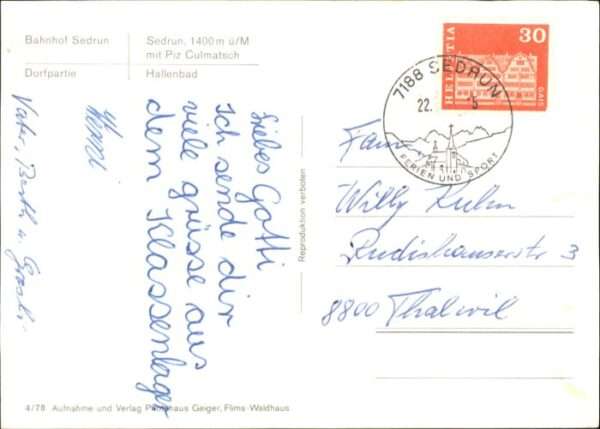 Bahnhof Sedrun
Sedrun, 1400m ü/M
mit Piz Culmatsch
Dorfpartie
Hallenbad
Liebes Gotti
Ich sende dir
viele grüsse aus
dem Klassenlager
Vater,
Reproduktion verboten
HELVETIA 30
GAIS
7188 SEDRUN
22. 5
FERIEN UND SPORT
Fam.
Willy Kuhn
Rudishauserstr 3
8800 Thalwil
4/78 Aufnahme und Verlag Photohaus Geiger, Flims-Waldhaus